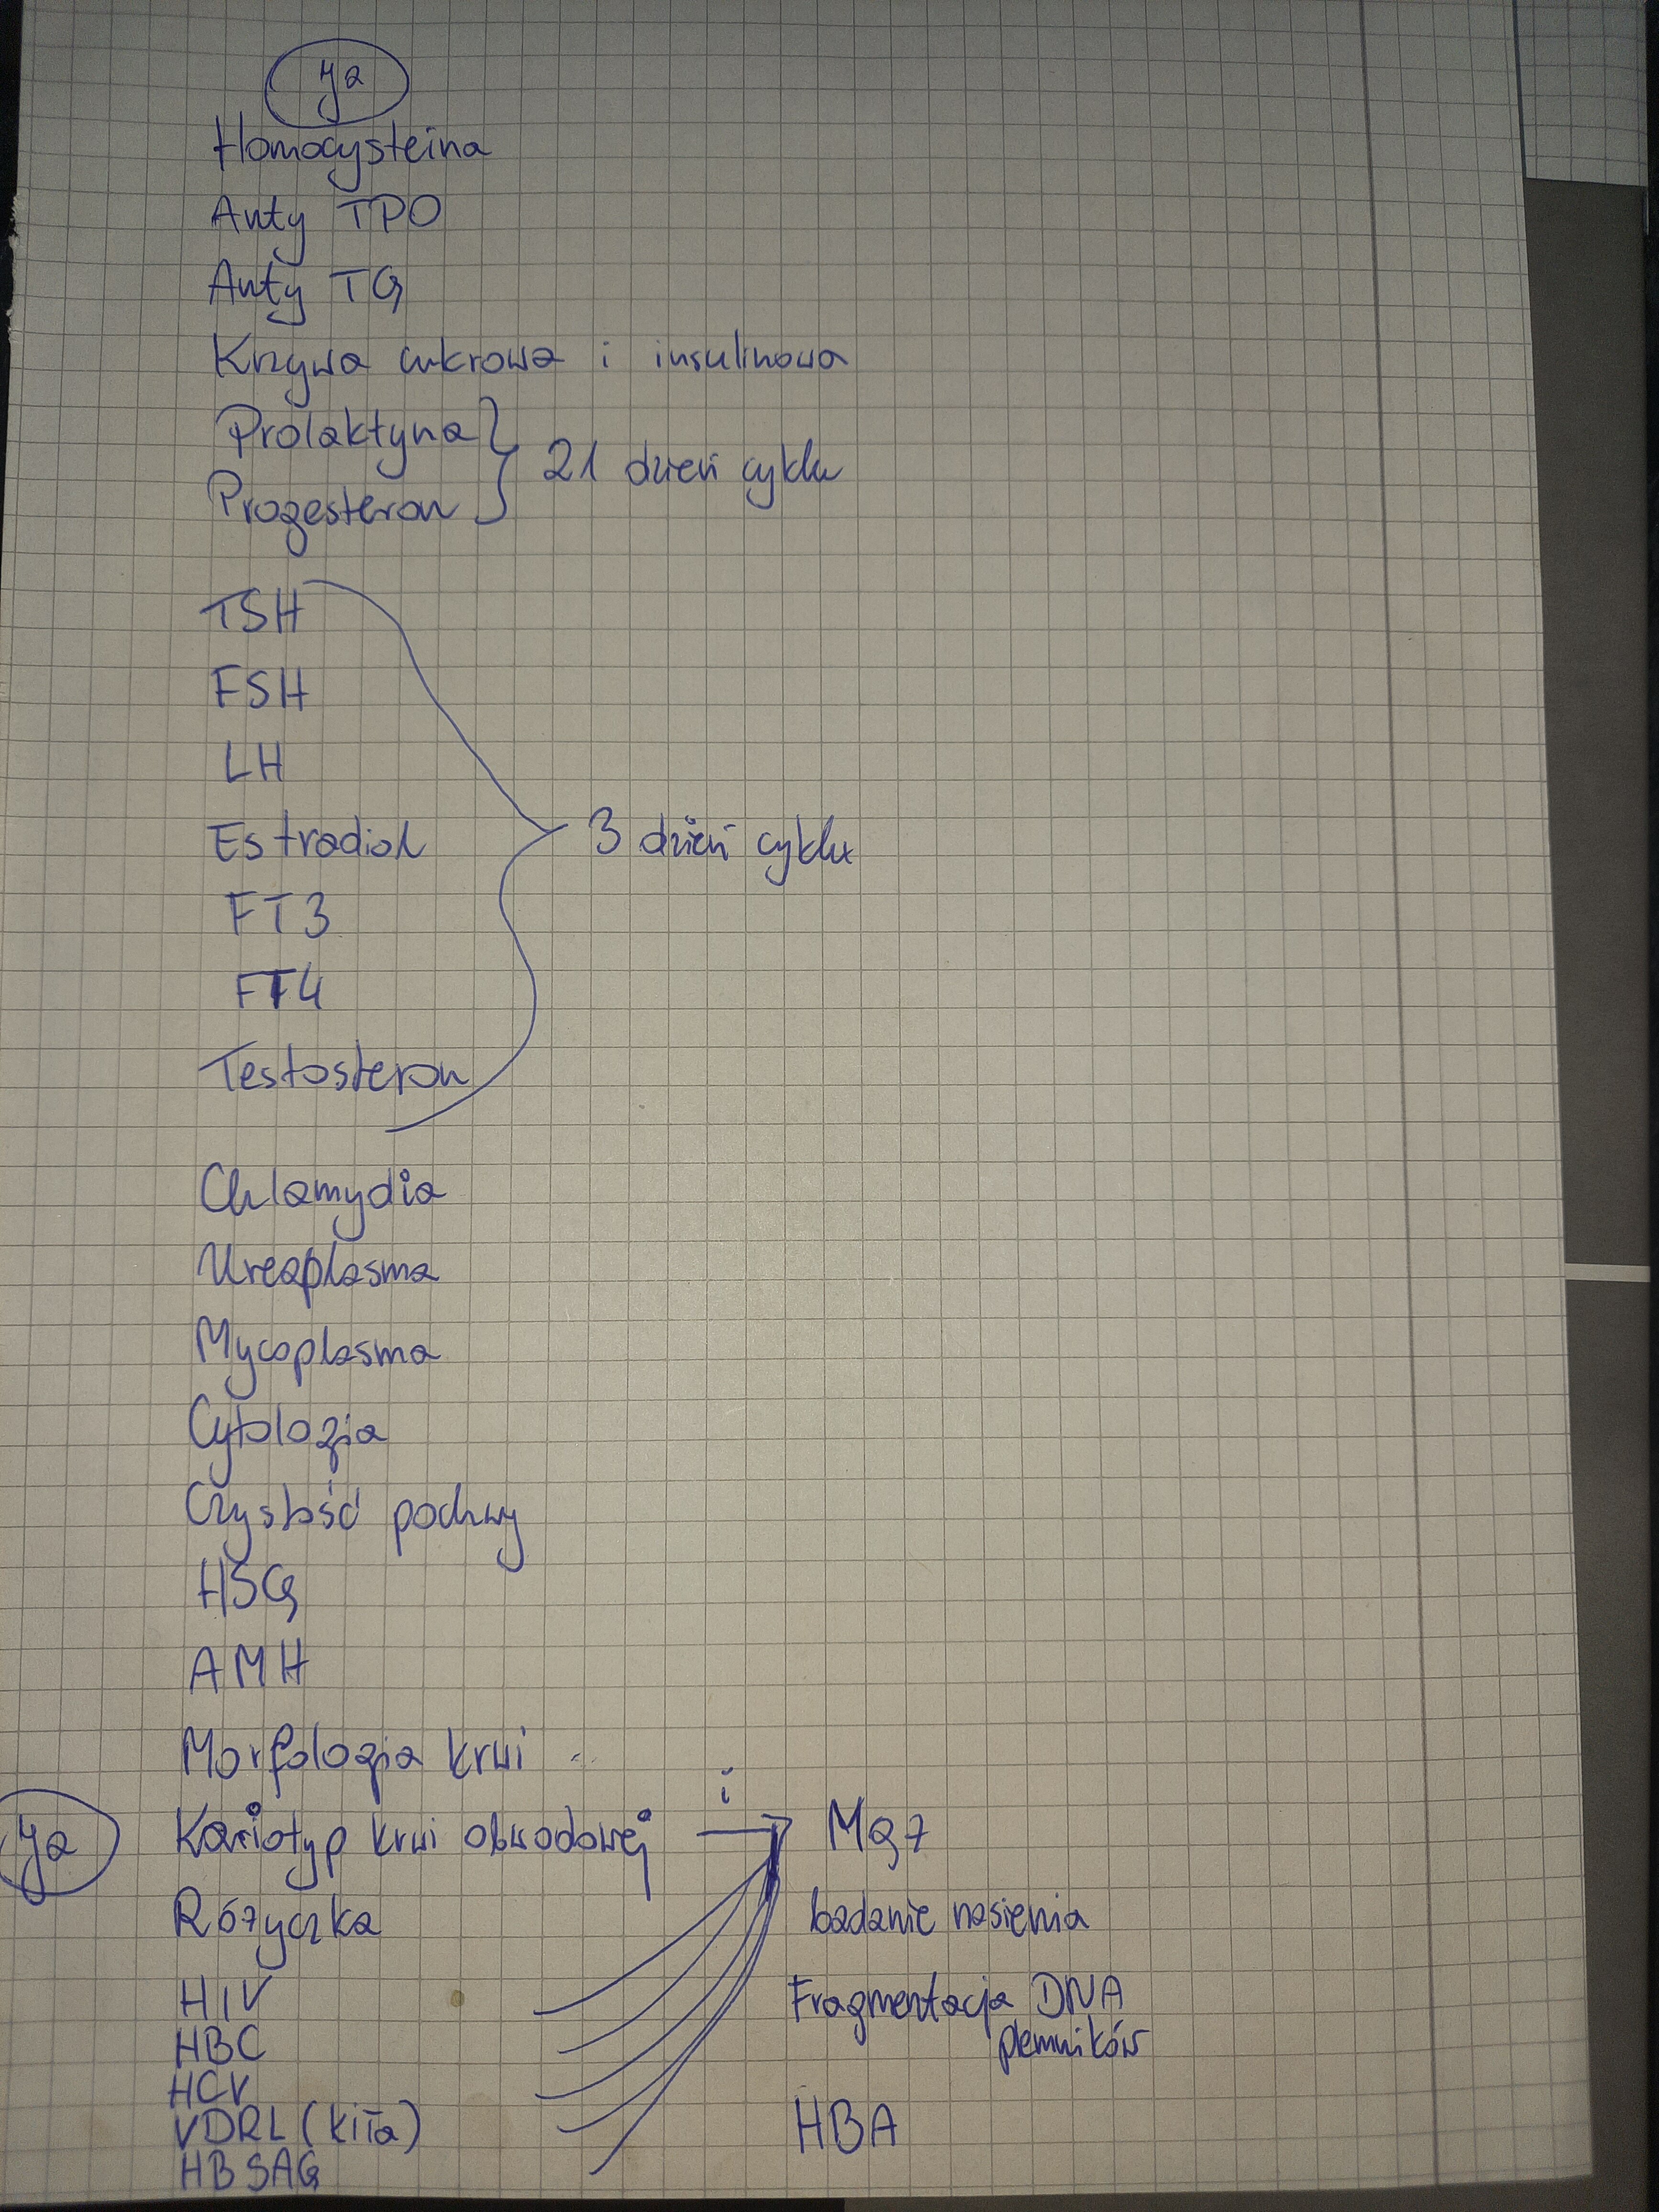 Ja
Homocysteina
Anty TPO
Anty TG
Krzywa cukrowa i insulinowa
Prolaktyna
21 dzień cyklu
Progesteron
TSH
FSH
LH
Estradiol
3 dzień cyklu
FT3
FT4
Testosteron
Chlamydia
Ureaplasma
Mycoplasma
Cytologia
Czystość pochwy
HSG
AMH
Morfologia krwi
Ja Kariotyp krwi obwodowej i Mąż
Różyczka badanie nasienia
HIV Fragmentacja DNA
HBC plemników
HCV
VDRL (kiła) HBA
HBSAG